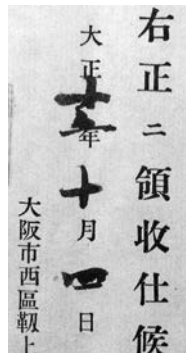 右正ニ領收仕候
大正十五年十月四日
大阪市西區靱上